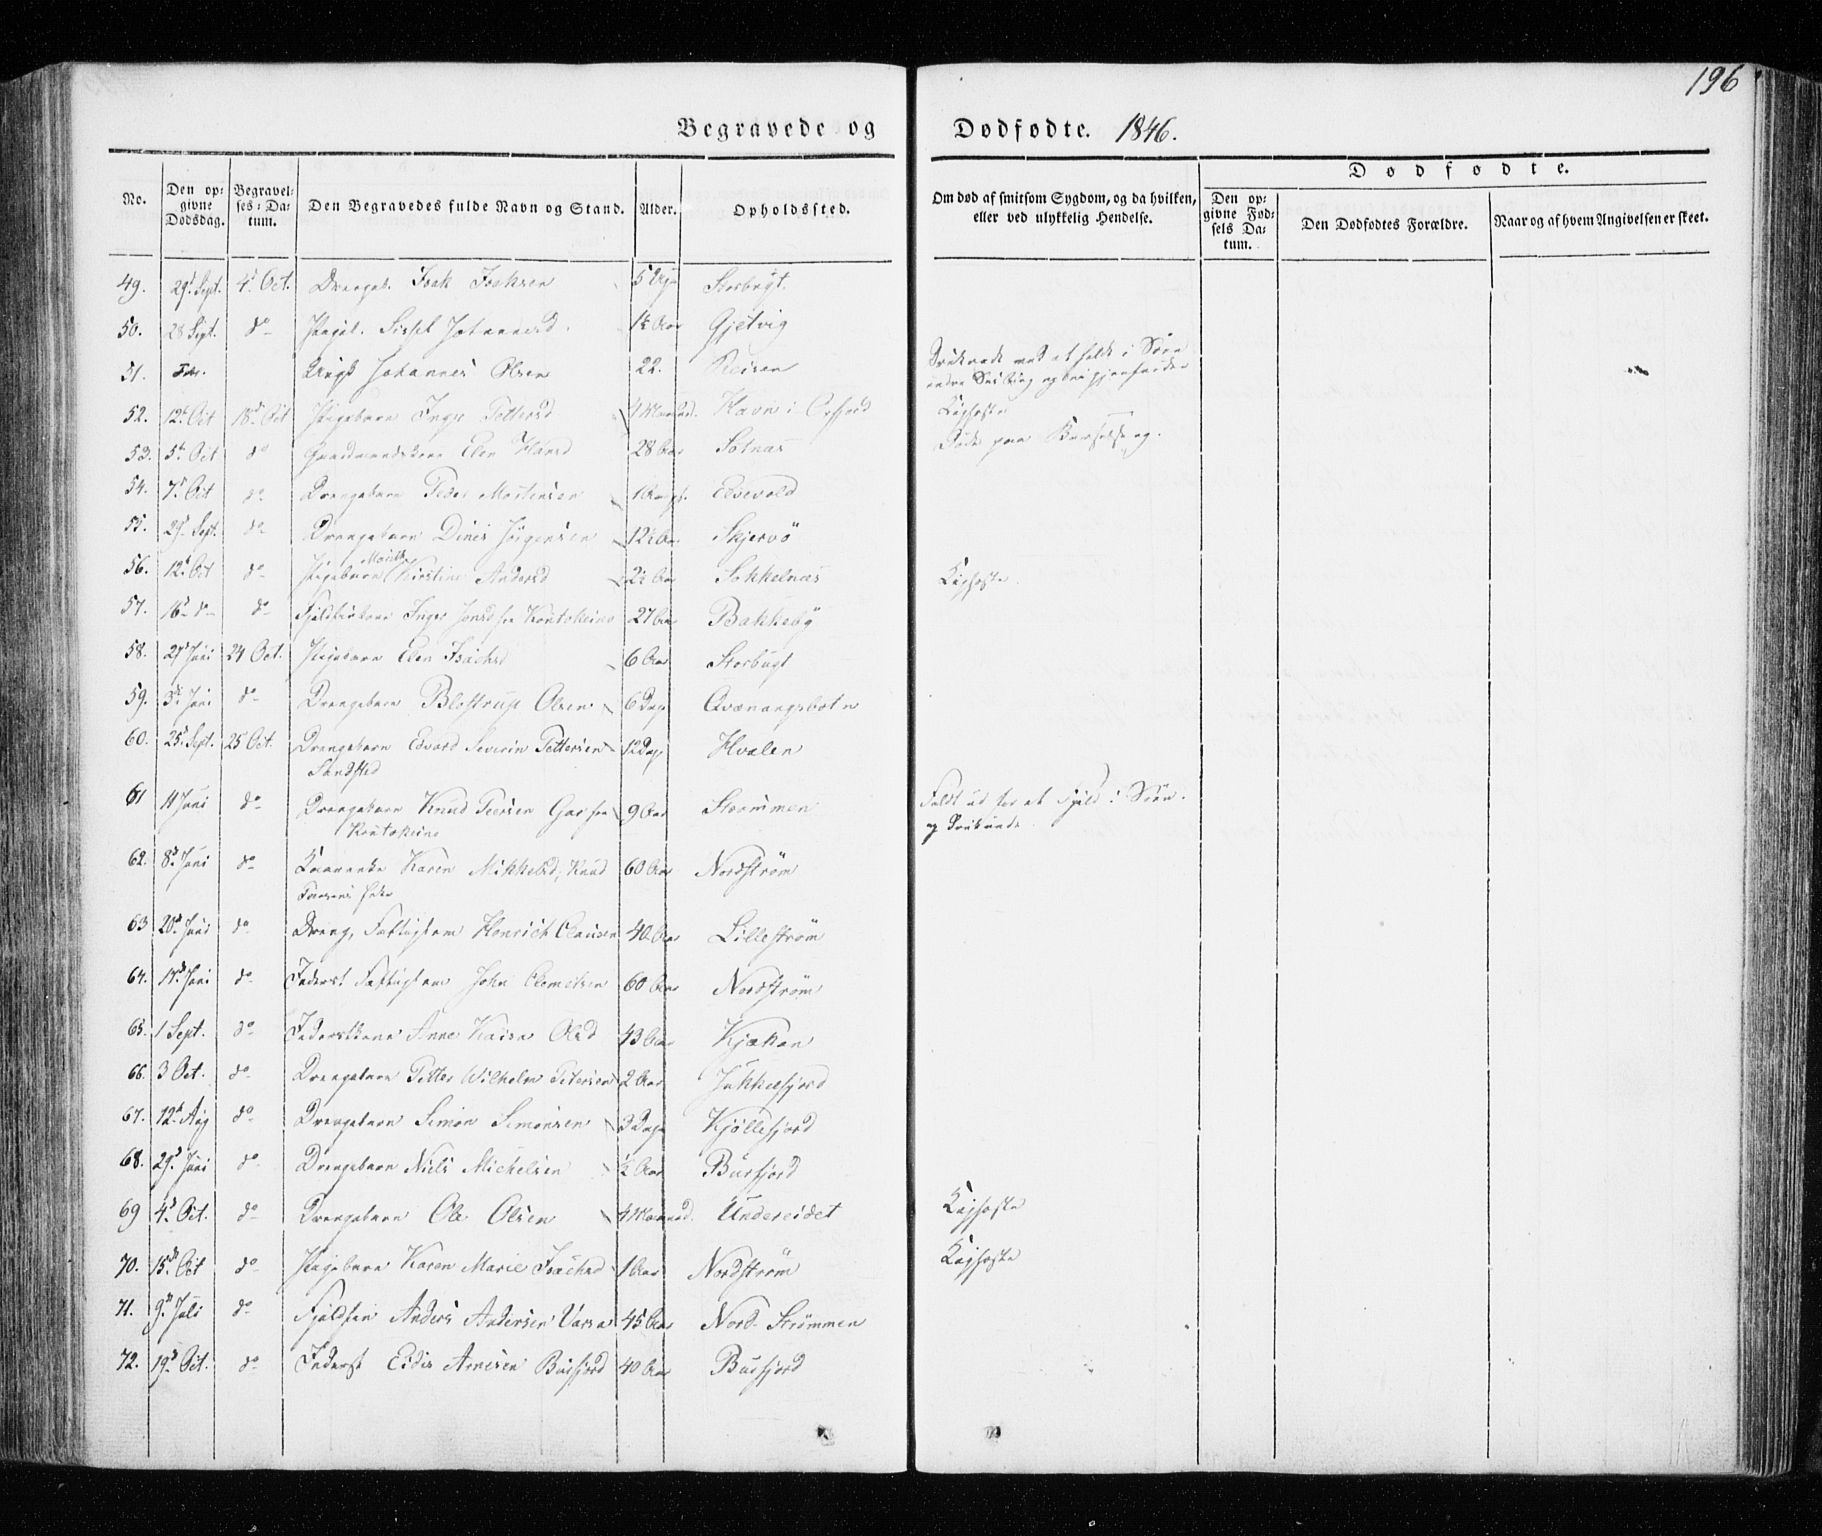 196
Begravede og Dødfødte. 1846.
No. Den opgivne Dødsdag. Begravelses-Datum. Den Begravedes fulde Navn og Stand. Alder. Opholdssted. Om død af smitsom Sygdom, og da hvilken, eller ved ulykkelig Hendelse. Dødfødte.
Den opgivne Fødsels Datum. Den Dødfødtes Forældre. Naar og af hvem Angivelsen er skeet.
49. 29d Sept. 4d Oct. Isak Isaksen 5 Storbugt.
50. 28 Sept. do Sissel Johannesd. 1½ Aar Gjetvig
51. Johannes Olsen 22. Reisen
52. 12t Oct 18d Oct Pigebarn Inger Pettersd 4 Maaned. Havn i
Kighoste
53. 5t Oct do Elen Hansd 28 Aar Sotnæs Døde paa Barselseng.
54. 7d Oct do Drengebarn Peder Mortensen 1 Elvevold
55. 29d Sept. do Drengebarn Dines Jörgensen 12½ Aar Skjervö
56. 12t Oct do Pigebarn Kirstine Andersd 2½ Aar Sokkelnæs Kighoste
57. 16d do do Inger Jonsd fra Koutokeino 27 Aar Bakkeby
58. 29d Juni 24 Oct. Pigebarn Elen Isachsd 6 Aar Storbugt
59. 3d Juni do Drengebarn Blostrup Olsen 6 Dage Qvænangsbotn
60. 25d Sept. 25 Oct. Drengebarn Edvard Severin Pettersen 12 Dage Hvalen
Sandsted
61 11 Juni do Drengebarn Knud Peersen Gar fra 9 Aar Strømmen Faldt ud for et Fjeld i Søen
Koutokeino og druknede.
62. 8d Juni do Karen Mikkelsd, Knud 60 Aar Nordstrøm
63 20d Juni do Dreng, Fattiglem Henrich Clausen 40 Aar Lillestrøm
64. 18d Juni do Inderst Fattiglem John Clemetsen 60 Aar Nordstrøm
65. 1 Sept. do Inderstkone Anne Kaisa Olsd 43 Aar Kjækan
66. 3 Oct. do Drengebarn Petter Wilhelm Petersen 2 Aar Jøkkelfjord
67. 12t Aug do Drengebarn Simon Simonsen 3 Dage Kjøllefjord
68. 29d Juni do Drengebarn Niels Michelsen ½ Aar Burfjord
69 4d Oct. do Drengebarn Ole Olsen 4 Maaned. Undereidet Kighoste
70. 15d Oct do Pigebarn Karen Marie Isachsd 1 Aar Nordstrøm Kighoste
71. 9d Juli do Anders Andersen Varsa 45 Aar Nord-Strømmen
72. 19d Oct. do Inderst Eidis Arnesen Burfjord 40 Aar Burfjord